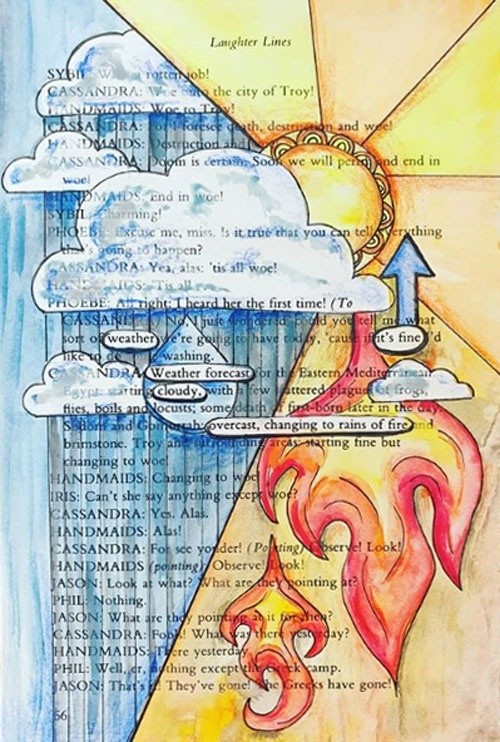 Laughter Lines
SYBIL: What rotten job!
CASSANDRA: Woe unto the city of Troy!
HANDMAIDS: Woe to Troy!
CASSANDRA: For I foresee death, destruction and woe!
HANDMAIDS: Destruction and
CASSANDRA: Doom is certain. Soon we will perish and end in
woe!
HANDMAIDS: End in woe!
SYBIL: Charming!
PHOEBE: Excuse me, miss. Is it true that you can tell everything
that's going to happen?
CASSANDRA: Yea, alas: 'tis all woe!
HANDMAIDS: 'Tis all
PHOEBE: All right; I heard her the first time! (To
CASSANDRA No, I just wondered could you tell me what
sort of weather we're going to have today, 'cause if it's fine I'd
like to do washing.
CASSANDRA: Weather forecast for the Eastern Mediterranean
Egypt: starting cloudy, with a few scattered plagues of frogs,
flies, boils and locusts; some death of first-born later in the day.
Sodom and Gomorrah: overcast, changing to rains of fire and
brimstone. Troy and surrounding areas: starting fine but
changing to woe!
HANDMAIDS: Changing to woe!
IRIS: Can't she say anything except woe?
CASSANDRA: Yes. Alas.
HANDMAIDS: Alas!
CASSANDRA: For see yonder! (Pointing) Observe! Look!
HANDMAIDS (pointing): Observe! Look!
JASON: Look at what? What are they pointing at?
PHIL: Nothing.
JASON: What are they pointing at it for then?
CASSANDRA: Fools! What was there yesterday?
HANDMAIDS: There yesterday
PHIL: Well, er, nothing except the Greek camp.
JASON: That's it! They've gone! The Greeks have gone!
56